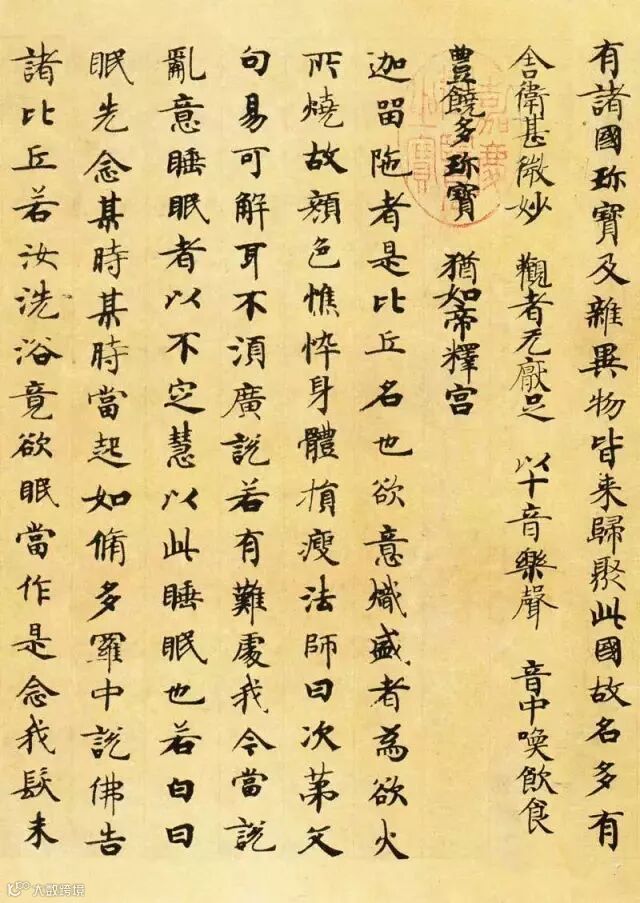 有諸國珎寶及雜異物皆来歸聚此國故名多有
舍衛甚微妙 觀者无厭足 以十音樂聲 音中喚飲食
豊饒多珎寶 猶如帝釋宮
迦留陁者是比丘名也欲意熾盛者為欲火
所燒故顔色憔悴身體損瘦法師曰次第文
句易可解耳不須廣說若有難處我今當說
亂意睡眠者以不定慧以此睡眠也若白日
眠先念某時某時當起如脩多羅中説佛告
諸比丘若汝洗浴竟欲眠當作是念我髮未
嘉慶
寶
大数跨境